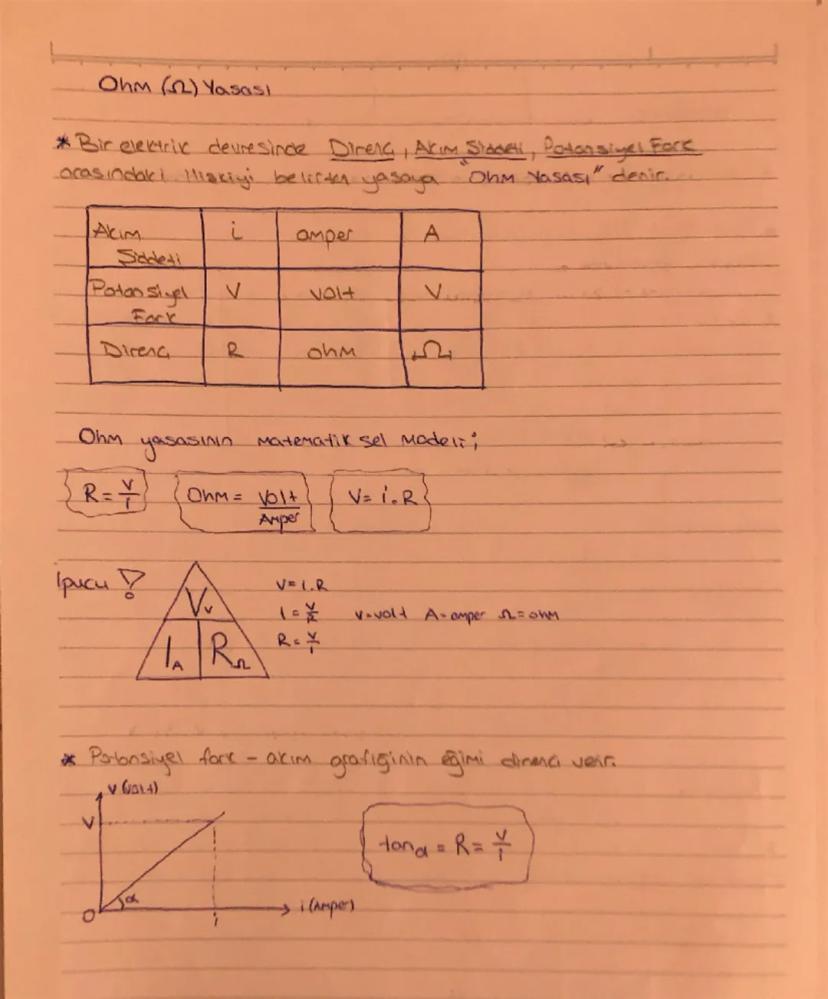 Ohm (Ω) Yasası
* Bir elektrik devresinde Direnç, Akım Şiddeti, Potansiyel Fark
arasındaki ilişkiyi belirten yasaya "Ohm Yasası" denir.
Akım Şiddeti i amper A
Potansiyel Fark V volt V
Direnç R ohm Ω
Ohm yasasının matematiksel modeli;
R = V/i Ohm = Volt/Amper V = i.R
İpucu !
V V
I A R Ω
V = I.R
I = V/R V=volt A=amper Ω=ohm
R = V/I
* Potansiyel fark - akım grafiğinin eğimi direnci verir.
V (Volt)
V
α
O i i (Amper)
tan α = R = V/i